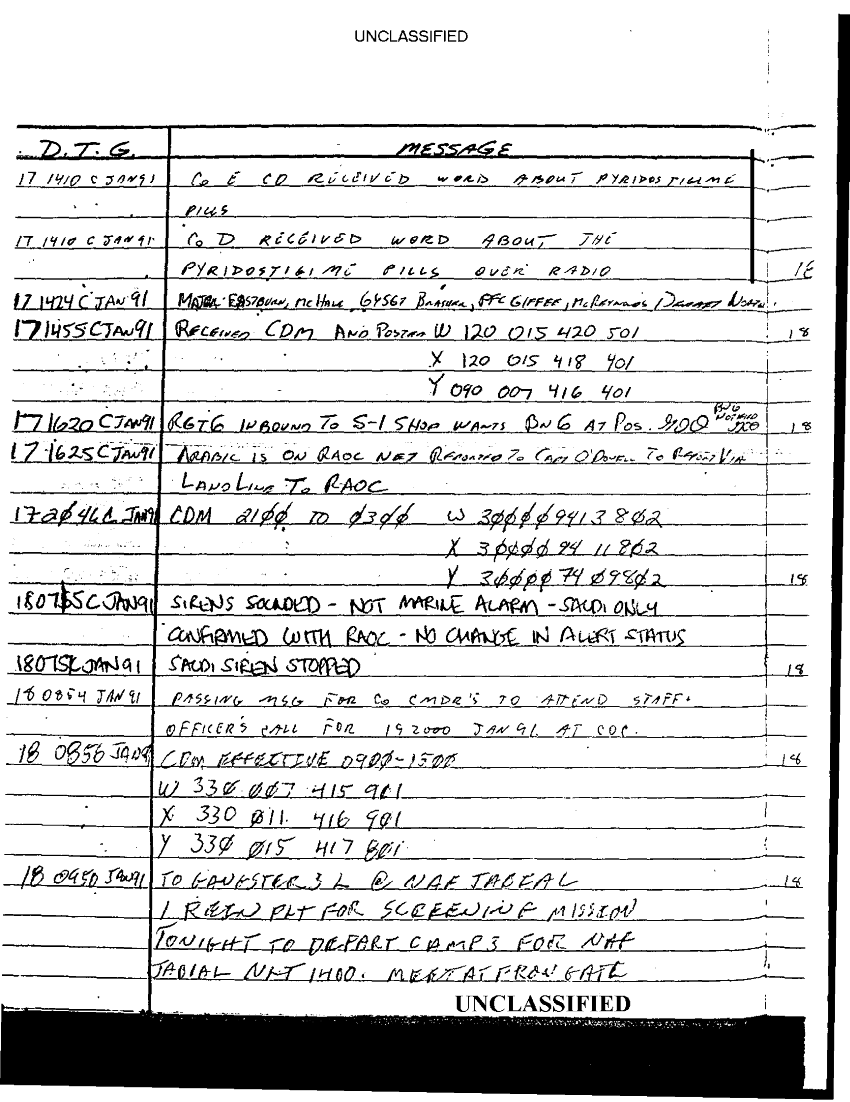 UNCLASSIFIED
D.T.G. MESSAGE
17 1410 C JAN91 Co E CO RECEIVED WORD ABOUT PYRIDOSTIGIME
PILLS
17 1410 C JAN91 Co D RECEIVED WORD ABOUT THE
PYRIDOSTIGIME PILLS OVER RADIO 18
17 1424 C JAN 91 MAJOR EASTBURN, McHALE, PFC GIFFEE, McREYNOLDS DEPART
171455C JAN91 RECEIVED CDM AND POSTED W 120 015 420 501 18
X 120 015 418 401
Y 090 007 416 401
171620 C JAN91 RGT6 INBOUND TO S-1 SHOP WANTS BN6 AT POS. BN6 NOTIFIED 18
17 1625 C JAN91 ARABIC IS ON RAOC NET REPORTED TO CAPT O'DOWELL TO REPORT VIA
LANDLINE TO RAOC
172046C JAN91 CDM 2100 TO 0300 W 300009413802
X 300009411802
Y 300007409802 18
180755C JAN91 SIRENS SOUNDED - NOT MARINE ALARM - SAUDI ONLY
CONFIRMED WITH RAOC - NO CHANGE IN ALERT STATUS
180758C JAN91 SAUDI SIREN STOPPED 18
18 0854 JAN 91 PASSING MSG FOR Co CMDR'S TO ATTEND STAFF +
OFFICER'S CALL FOR 192000 JAN 91 AT COC.
18 0856 JAN91 CDM EFFECTIVE 0900-1500 18
W 330 007 415 901
X 330 011 416 901
Y 330 015 417 801
18 0950 JAN91 TO GANGSTER 3 L @ NAF JABEAL 18
1 REIN PLT FOR SCREENING MISSION
TONIGHT TO DEPART CAMP 3 FOR NAF
JABIAL NLT 1400. MEET AT FRONT GATE
UNCLASSIFIED